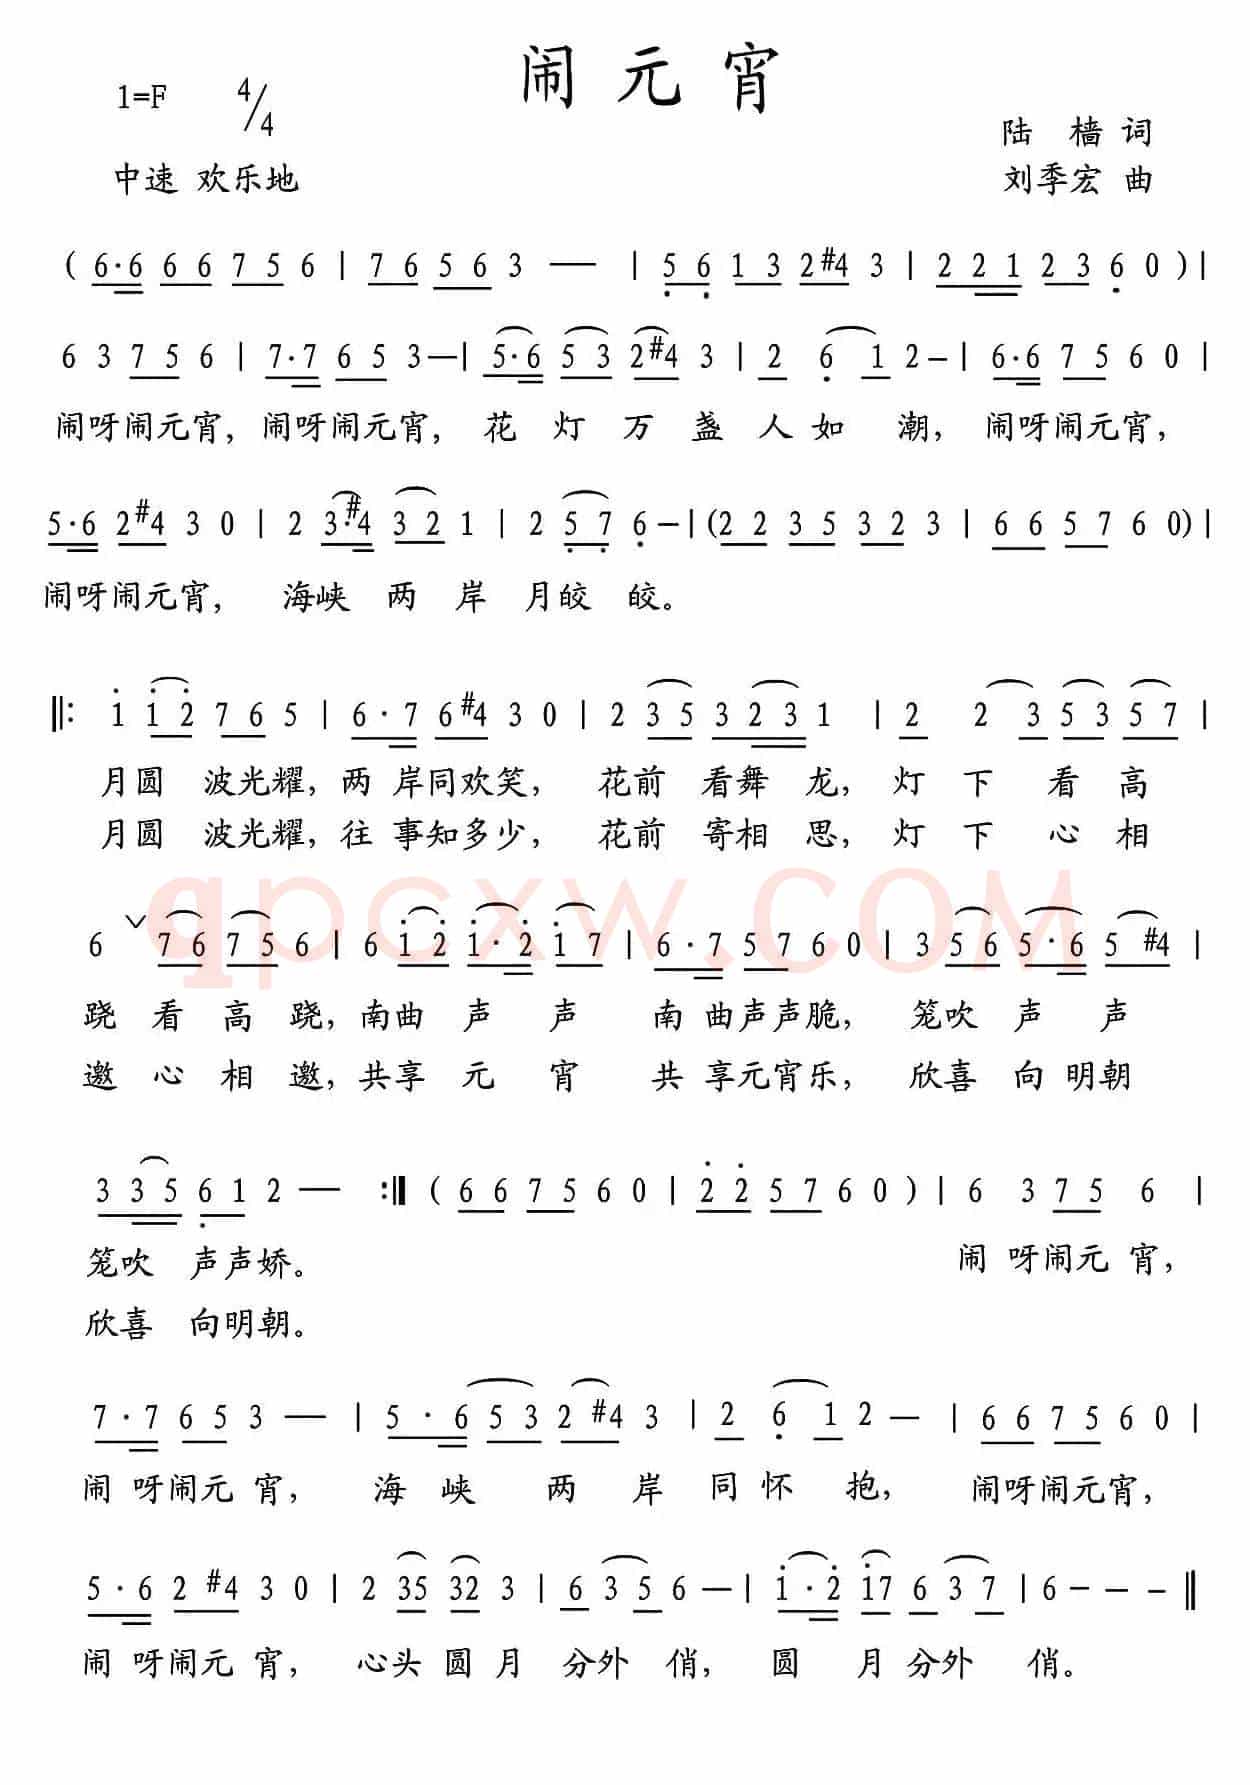 闹元宵
1=F 4/4
陆 樯 词
中速 欢乐地
刘季宏 曲
( 6·6 6 6 7 5 6 | 7 6 5 6 3 — | 5 6 1 3 2 #4 3 | 2 2 1 2 3 6 0 ) |
6 3 7 5 6 | 7·7 6 5 3 — | 5·6 5 3 2 #4 3 | 2 6 1 2 — | 6·6 7 5 6 0 |
闹呀闹元宵, 闹呀闹元宵, 花 灯 万 盏 人 如 潮, 闹呀闹元宵,
5·6 2 #4 3 0 | 2 3·#4 3 2 1 | 2 5 7 6 — | (2 2 3 5 3 2 3 | 6 6 5 7 6 0) |
闹呀闹元宵, 海峡 两 岸 月皎 皎。
‖: 1 1 2 7 6 5 | 6·7 6 #4 3 0 | 2 3 5 3 2 3 1 | 2 2 3 5 3 5 7 |
月圆 波光耀, 两 岸同欢笑, 花前 看舞 龙, 灯 下 看 高
月圆 波光耀, 往 事知多少, 花前 寄相 思, 灯 下 心 相
qpcxw.COM
6 ∨ 7 6 7 5 6 | 6 1 2 1·2 1 7 | 6·7 5 7 6 0 | 3 5 6 5·6 5 #4 |
跷 看 高 跷, 南曲 声 声 南 曲声声脆, 笼吹 声 声
邀 心 相 邀, 共享 元 宵 共 享元宵乐, 欣喜 向 明朝
3 3 5 6 1 2 — :‖ ( 6 6 7 5 6 0 | 2 2 5 7 6 0 ) | 6 3 7 5 6 |
笼吹 声声娇。 闹 呀闹元 宵,
欣喜 向明朝。
7·7 6 5 3 — | 5·6 5 3 2 #4 3 | 2 6 1 2 — | 6 6 7 5 6 0 |
闹 呀闹元 宵, 海 峡 两 岸 同 怀 抱, 闹呀闹元宵,
5·6 2 #4 3 0 | 2 35 32 3 | 6 3 5 6 — | 1·2 17 6 3 7 | 6 — — — ‖
闹 呀闹元 宵, 心头 圆 月 分外 俏, 圆 月 分外 俏。